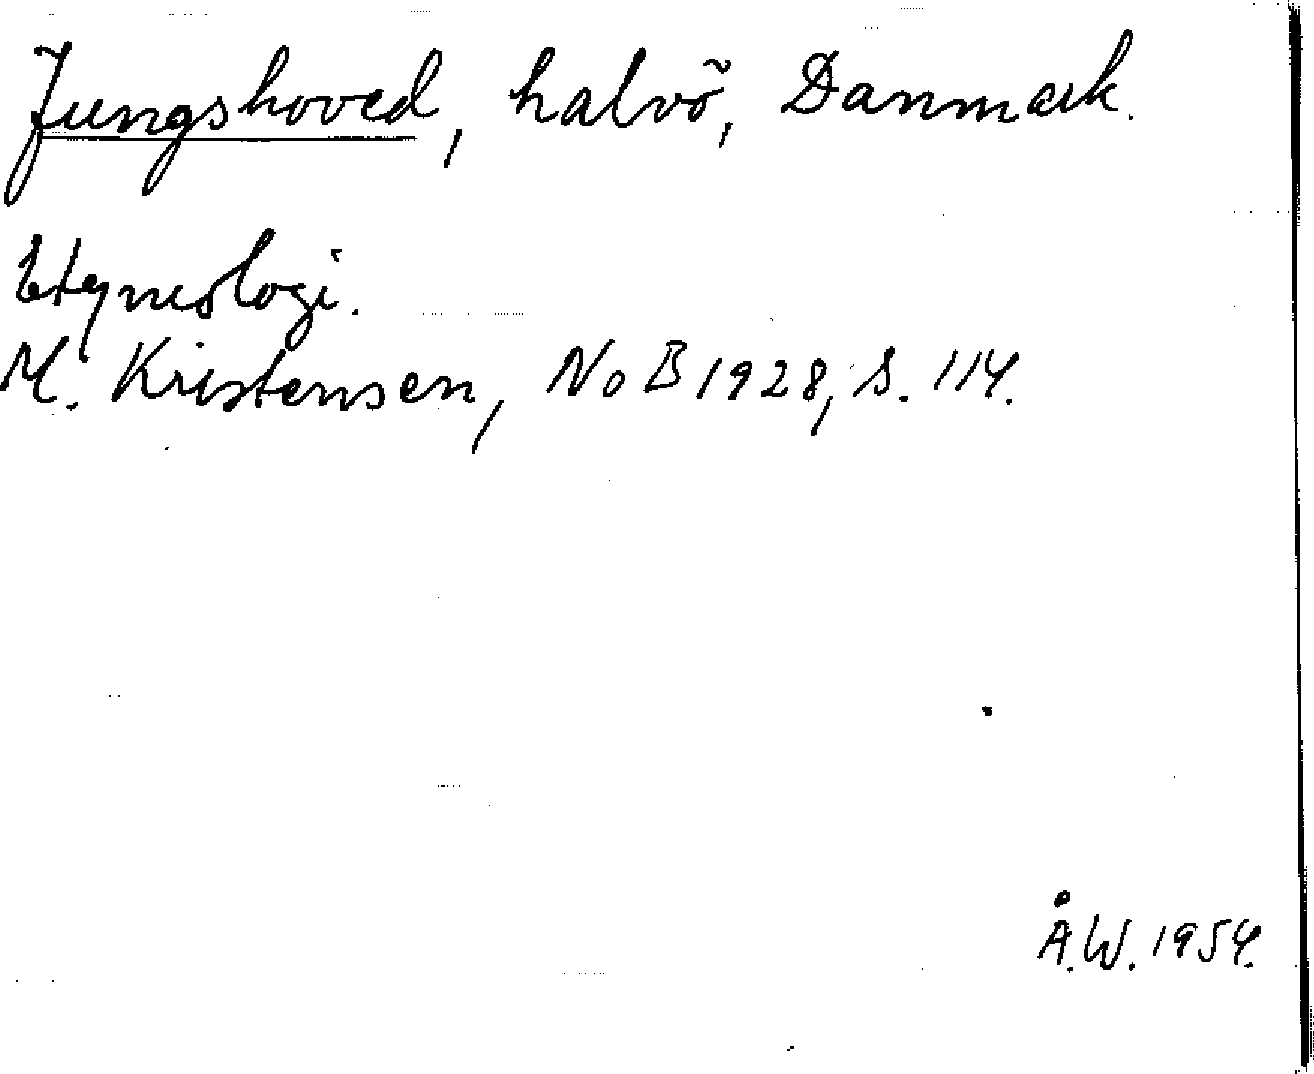 Jungshoved, halvö, Danmark.
Etymologi.
M. Kristensen, NoB 1928, s. 114.
Å.W. 1954.